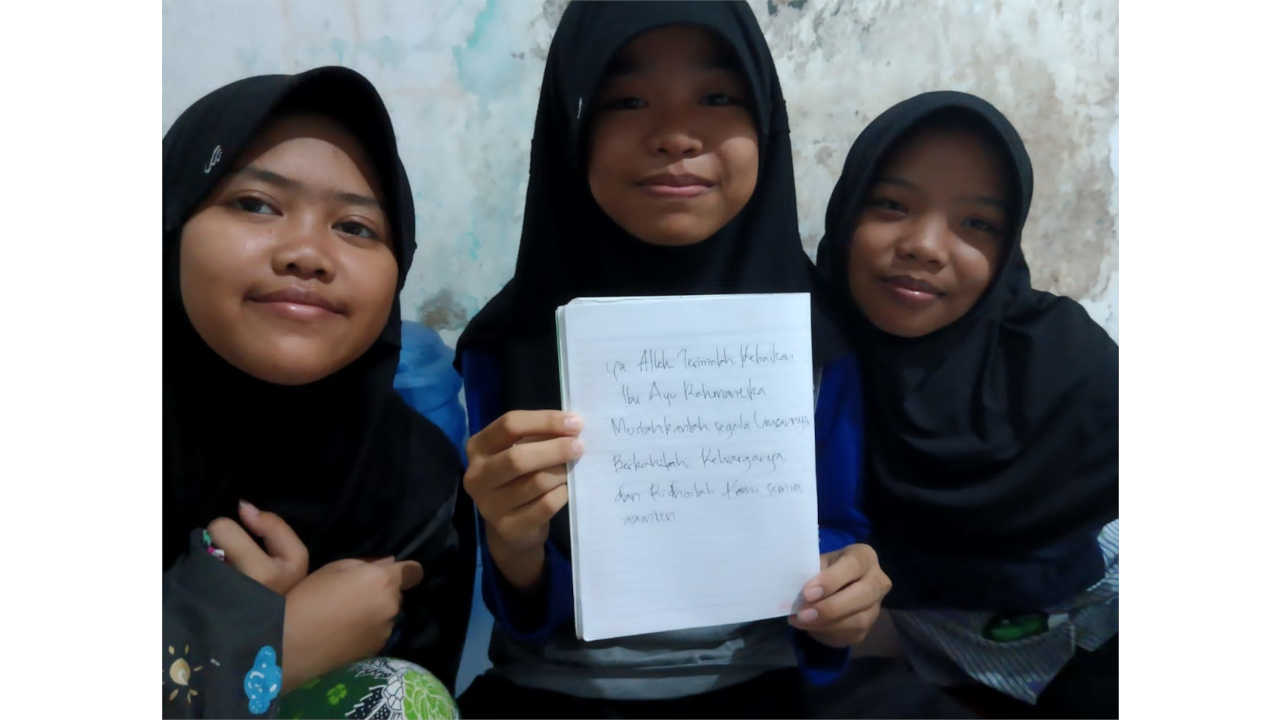 ya Allah Terimalah Kebaikan
Ibu Ayu Rahmaneka
Mudahkanlah segala Urusannya
Berkahilah Keluarganya
dan Ridhoilah Kami semua
aamiin